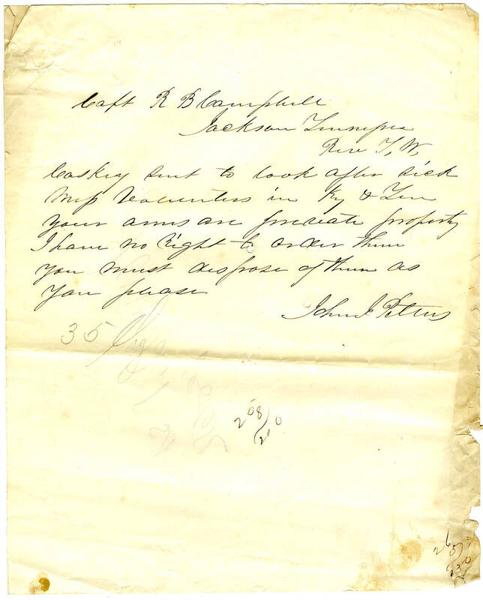 Capt R B Campbell
Jackson Tennessee
Rev T, W,
Caskey sent to look after sick
Miss Volunteers in Ky & Ten
your arms are private property
I have no right to order them
you must dispose of them as
you please
John J Pettus
35